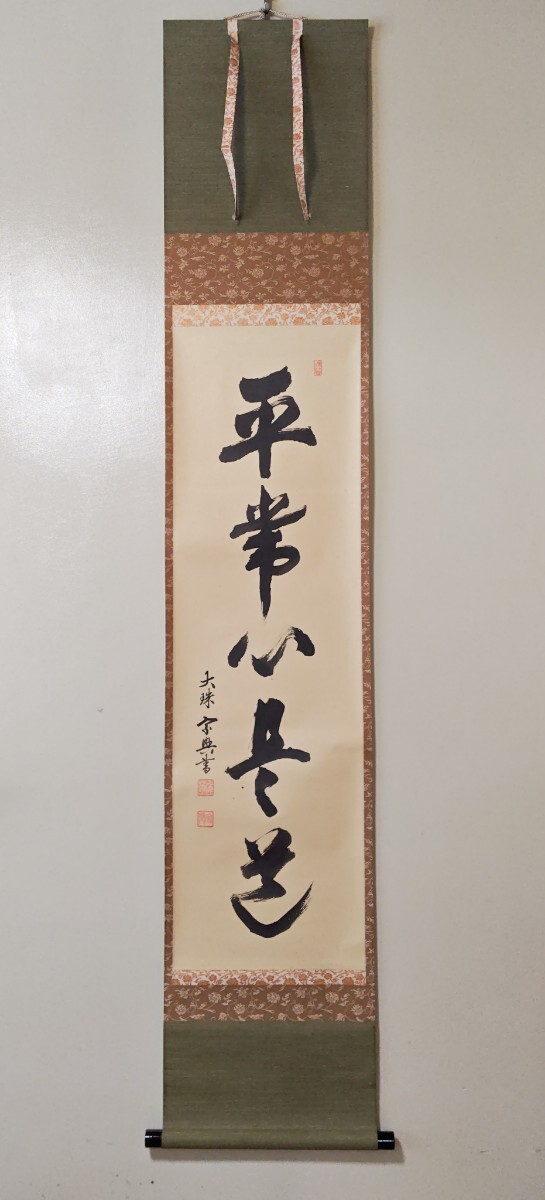 平常心是道
大珠 宗典書